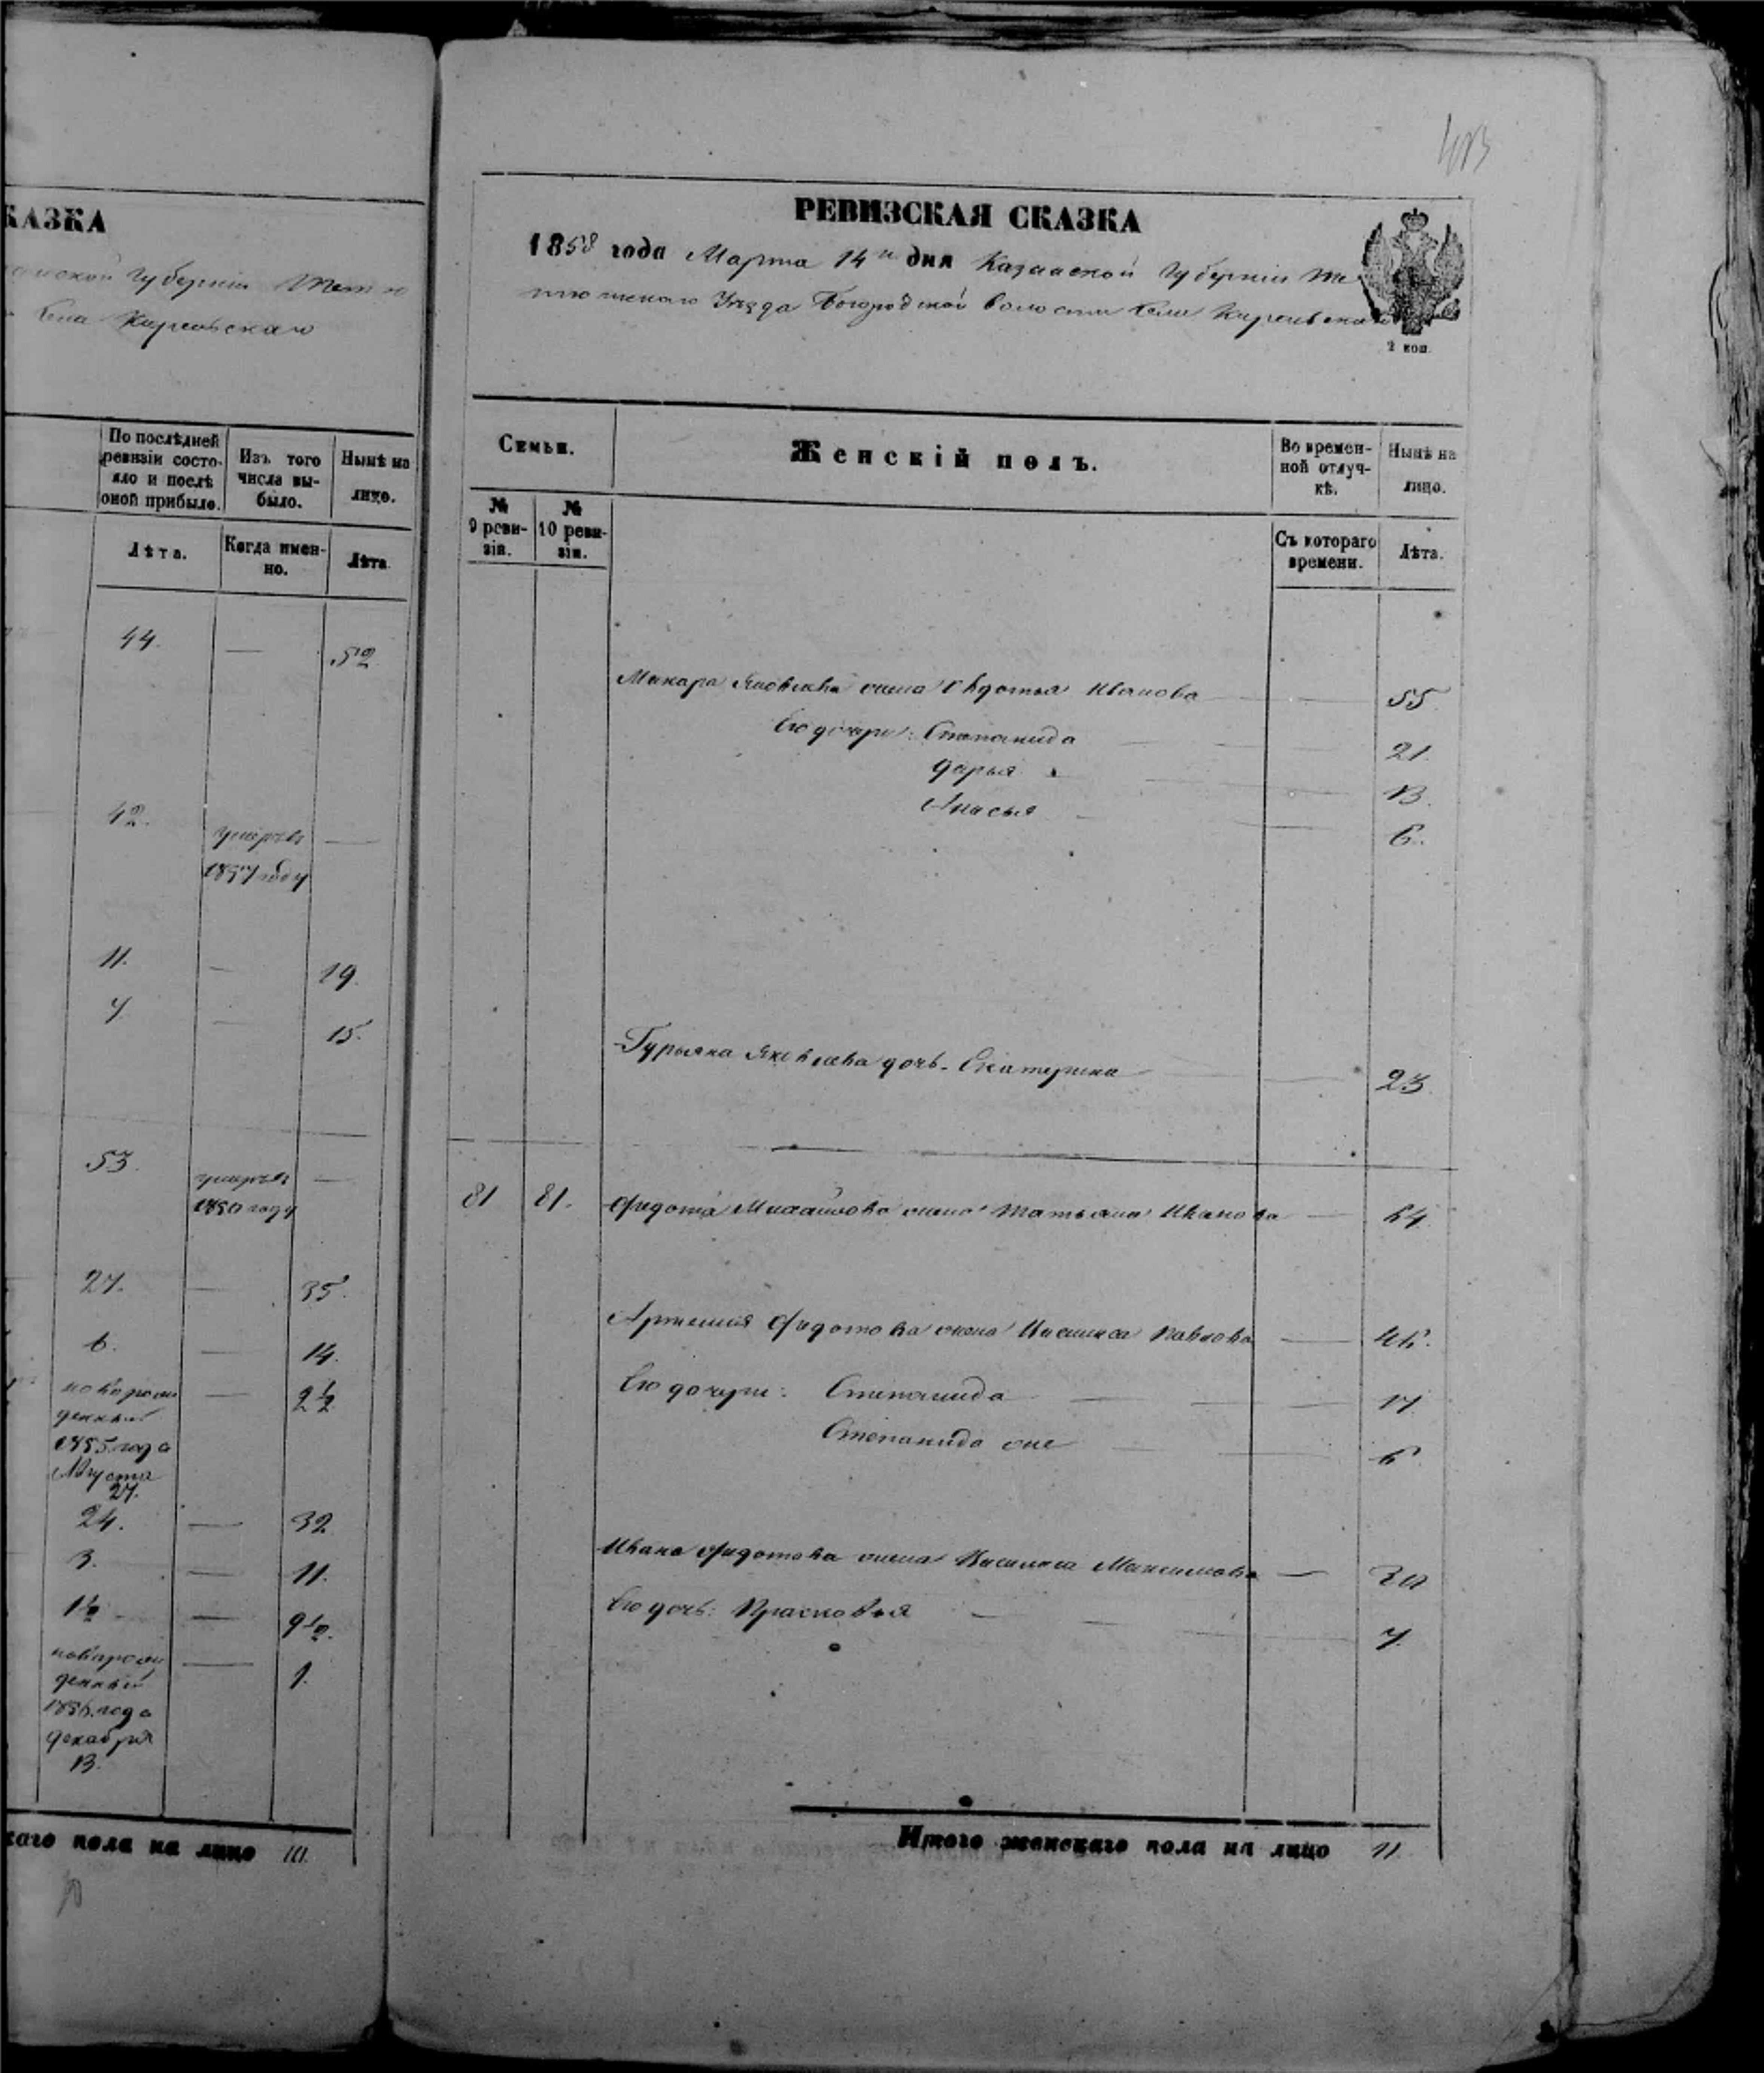 413
КАЗКА
Губерніи Тетю
Села Кирельскаго
По послѣдней ревизіи состояло и послѣ оной прибыло.
Изъ того числа выбыло.
Нынѣ на лицо.
Лѣта.
Когда именно.
Лѣта
44. — 52
42. умеръ въ —
1857 году
11. — 19.
7 — 15.
53. умеръ въ —
1850 году
27. — 35.
6. — 14.
новорож — 2½
денный
1855 года
Августа
27.
24. — 32
3. — 11.
1½ — 9½.
новорож — 1.
денный
1856 года
декабря
13.
каго пола на лицо 10.
РЕВИЗСКАЯ СКАЗКА
1858 года Марта 14го дня Казанской Губерніи Те
тюшскаго Уѣзда Богородской волости Села Кирельскаго
2 коп.
Семьи.
Женскій полъ.
Во временной отлучкѣ.
Нынѣ на лицо.
№ 9 ревизіи.
№ 10 ревизіи.
Съ котораго времени.
Лѣта.
Макара Яковлева жена Авдотья Иванова — 55
Его дочери: Степанида — 21.
Дарья — 13.
Анасья — 6.
Гурьяна Яковлева дочь Екатерина — 23
81 81. Федота Михайлова жена Татьяна Иванова — 64
Артемия Федотова жена Василиса Павлова — 46.
Его дочери: Степанида — 17
Степанида же — 6
Ивана Федотова жена Василиса Максимова — 30
Его дочь: Прасковья — 7.
Итого женскаго пола на лицо 11.